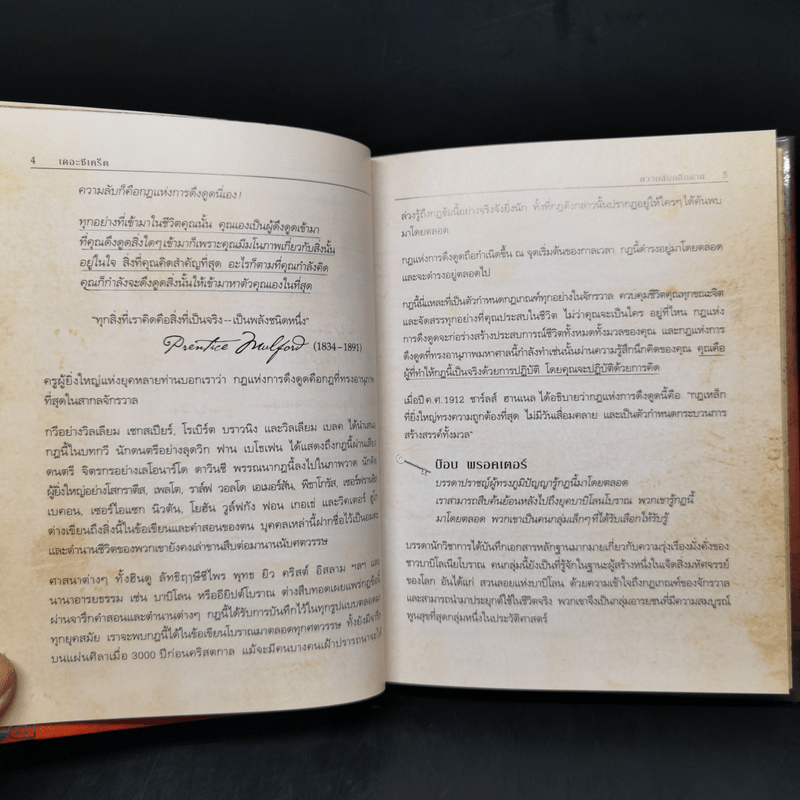 4 เดอะซีเคร็ต
ความลับก็คือกฎแห่งการดึงดูดนี่เอง!
ทุกอย่างที่เข้ามาในชีวิตคุณนั้น คุณเองเป็นผู้ดึงดูดเข้ามา
ที่คุณดึงดูดสิ่งใดๆ เข้ามาก็เพราะคุณมีมโนภาพเกี่ยวกับสิ่งนั้น
อยู่ในใจ สิ่งที่คุณคิดสำคัญที่สุด อะไรก็ตามที่คุณกำลังคิด
คุณก็กำลังจะดึงดูดสิ่งนั้นให้เข้ามาหาตัวคุณเองในที่สุด
"ทุกสิ่งที่เราคิดคือสิ่งที่เป็นจริง--เป็นพลังชนิดหนึ่ง"
Prentice Mulford (1834-1891)
ครูผู้ยิ่งใหญ่แห่งยุคหลายท่านบอกเราว่า กฎแห่งการดึงดูดคือกฎที่ทรงอานุภาพ
ที่สุดในสากลจักรวาล
กวีอย่างวิลเลียม เชกสเปียร์, โรเบิร์ต บราวนิง และวิลเลียม เบลค ได้นำเสนอ
กฎนี้ในบทกวี นักดนตรีอย่างลุดวิก ฟาน เบโธเฟน ได้แสดงถึงกฎนี้ผ่านเสียง
ดนตรี จิตรกรอย่างเลโอนาร์โด ดาวินชี พรรณนากฎนี้ลงไปในภาพวาด นักคิด
ผู้ยิ่งใหญ่อย่างโสกราตีส, เพลโต, ราล์ฟ วอลโด เอเมอร์สัน, พีธาโกรัส, เซอร์ฟรานซิส
เบคอน, เซอร์ไอแซก นิวตัน, โยฮัน วูล์ฟกัง ฟอน เกอเธ่ และวิคเตอร์ ฮูโก
ต่างเขียนถึงสิ่งนี้ในข้อเขียนและคำสอนของตน บุคคลเหล่านี้ฝากชื่อไว้เป็นอมตะ
และตำนานชีวิตของพวกเขายังคงเล่าขานสืบต่อมานานนับศตวรรษ
ศาสนาต่างๆ ทั้งฮินดู ลัทธิฤาษีชีไพร พุทธ ยิว คริสต์ อิสลาม ฯลฯ และ
นานาอารยธรรม เช่น บาบิโลน หรืออียิปต์โบราณ ต่างสืบทอดเผยแพร่กฎข้อนี้
ผ่านจารึกคำสอนและตำนานต่างๆ กฎนี้ได้รับการบันทึกไว้ในทุกรูปแบบตลอดมา
ทุกยุคสมัย เราจะพบกฎนี้ได้ในข้อเขียนโบราณมาตลอดทุกศตวรรษ ทั้งยังมีจารึก
บนแผ่นศิลาเมื่อ 3000 ปีก่อนคริสตกาล แม้จะมีคนบางคนเฝ้าปรารถนาจะได้
ความลับเปิดเผย 5
ล่วงรู้ถึงกฎข้อนี้อย่างจริงจังยิ่งนัก ทั้งที่กฎดังกล่าวนั้นปรากฏอยู่ให้ใครๆ ได้ค้นพบ
มาโดยตลอด
กฎแห่งการดึงดูดถือกำเนิดขึ้น ณ จุดเริ่มต้นของกาลเวลา กฎนี้ดำรงอยู่มาโดยตลอด
และจะดำรงอยู่ตลอดไป
กฎนี้นี่แหละที่เป็นตัวกำหนดกฎเกณฑ์ทุกอย่างในจักรวาล ควบคุมชีวิตคุณทุกขณะจิต
และจัดสรรทุกอย่างที่คุณประสบในชีวิต ไม่ว่าคุณจะเป็นใคร อยู่ที่ไหน กฎแห่ง
การดึงดูดจะก่อร่างสร้างประสบการณ์ชีวิตทั้งหมดทั้งมวลของคุณ และกฎแห่งการ
ดึงดูดที่ทรงอานุภาพมหาศาลนี้กำลังทำเช่นนั้นผ่านความรู้สึกนึกคิดของคุณ คุณคือ
ผู้ที่ทำให้กฎนี้เป็นจริงด้วยการปฏิบัติ โดยคุณจะปฏิบัติด้วยการคิด
เมื่อปี ค.ศ. 1912 ชาร์ลส์ ฮาเนล ได้อธิบายว่ากฎแห่งการดึงดูดนี้คือ: "กฎเหล็ก
ที่ยิ่งใหญ่ทรงความถูกต้องที่สุด ไม่มีวันเสื่อมคลาย และเป็นตัวกำหนดกระบวนการ
สร้างสรรค์ทั้งมวล"
บ๊อบ พรอคเตอร์
บรรดาปราชญ์ผู้ทรงภูมิปัญญารู้กฎนี้มาโดยตลอด
เราสามารถสืบค้นย้อนหลังไปถึงยุคบาบิโลนโบราณ พวกเขารู้กฎนี้
มาโดยตลอด พวกเขาเป็นคนกลุ่มเล็กๆ ที่ได้รับเลือกให้รับรู้
บรรดานักวิชาการได้บันทึกเอกสารหลักฐานมากมายเกี่ยวกับความรุ่งเรืองมั่งคั่งของ
ชาวบาบิโลเนียโบราณ คนกลุ่มนี้ยังเป็นที่รู้จักในฐานะผู้สร้างหนึ่งในเจ็ดสิ่งมหัศจรรย์
ของโลก อันได้แก่ สวนลอยแห่งบาบิโลน ด้วยความเข้าใจถึงกฎเกณฑ์ของจักรวาล
และสามารถนำมาประยุกต์ใช้ในชีวิตจริง พวกเขาจึงเป็นกลุ่มอารยชนที่มีความสมบูรณ์
พูนสุขที่สุดกลุ่มหนึ่งในประวัติศาสตร์